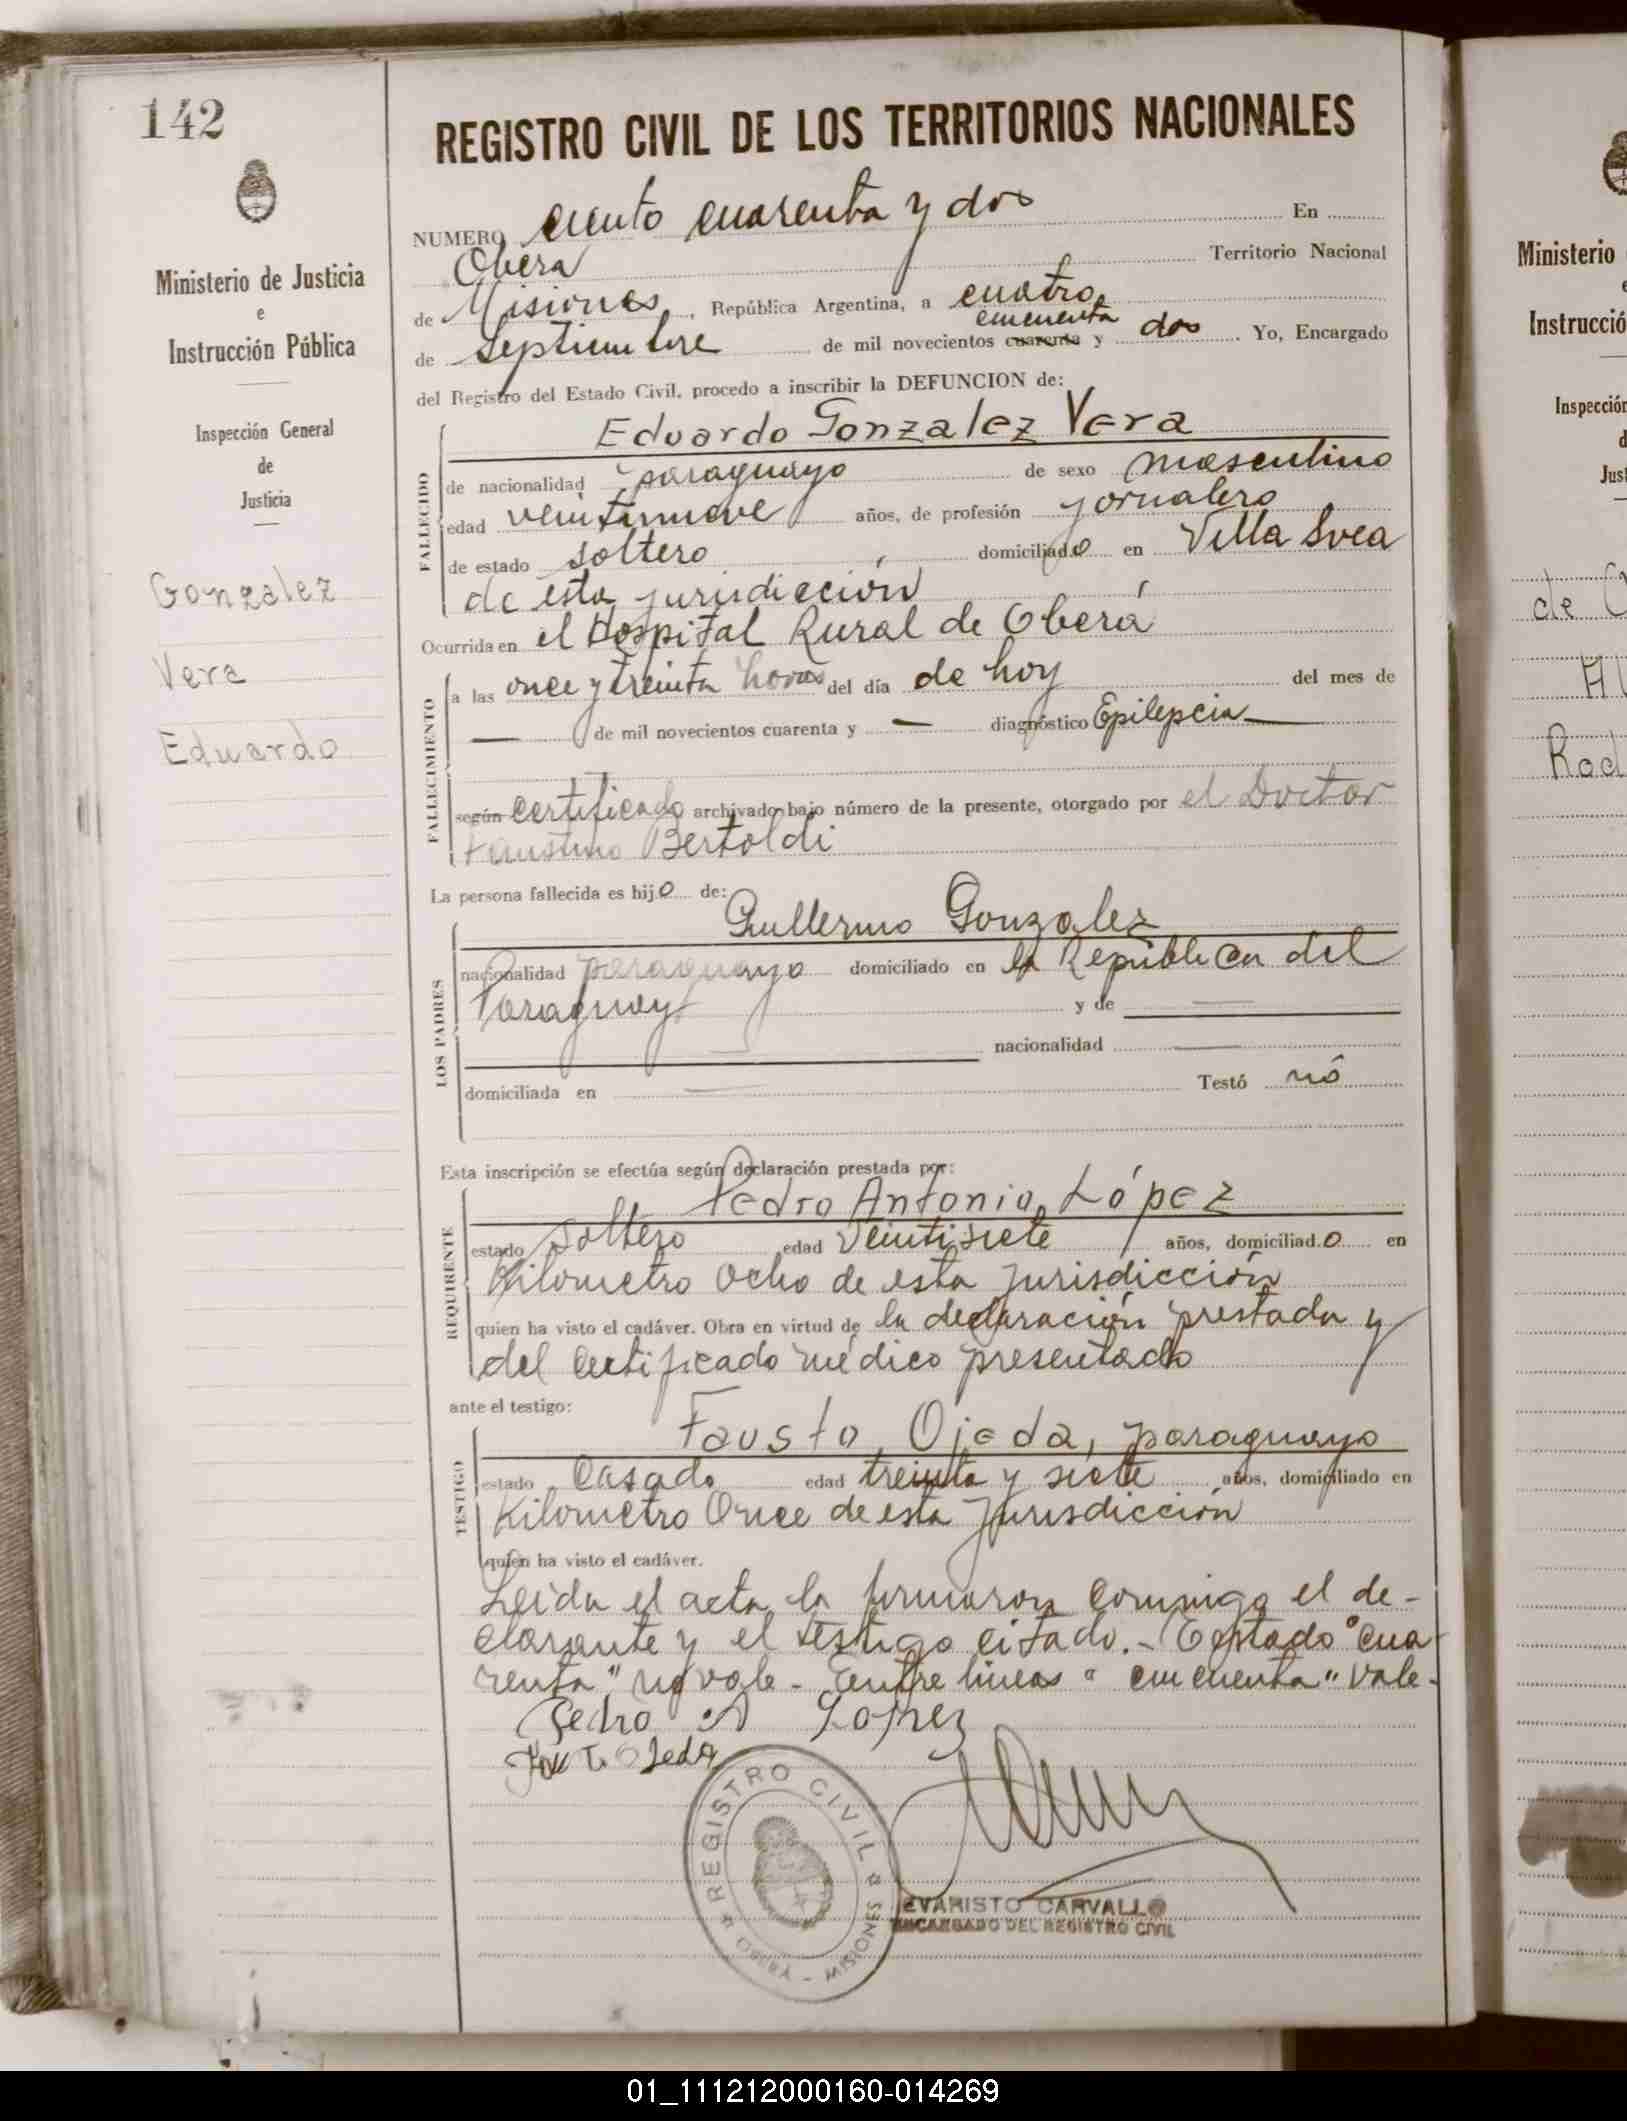 142
Ministerio de Justicia
e
Instrucción Pública
Inspección General
de
Justicia
Gonzalez
Vera
Eduardo
REGISTRO CIVIL DE LOS TERRITORIOS NACIONALES
NUMERO ciento cuarenta y dos En
Oberá Territorio Nacional
de Misiones, República Argentina, a cuatro
cincuenta
de Septiembre de mil novecientos cuarenta y dos. Yo, Encargado
del Registro del Estado Civil, procedo a inscribir la DEFUNCION de:
FALLECIDO
Eduardo Gonzalez Vera
de nacionalidad paraguayo de sexo masculino
edad veintinueve años, de profesión jornalero
de estado soltero domiciliado en Villa Svea
de esta jurisdicción
Ocurrida en el Hospital Rural de Oberá
FALLECIMIENTO
a las once y treinta horas del día de hoy del mes de
— de mil novecientos cuarenta y — diagnóstico Epilepcia —
según certificado archivado bajo número de la presente, otorgado por el Doctor
Faustino Bertoldi
La persona fallecida es hijo de:
LOS PADRES
Guillermo Gonzalez
nacionalidad paraguayo domiciliado en la República del
Paraguay y de —
nacionalidad —
domiciliada en — Testó nó
Esta inscripción se efectúa según declaración prestada por:
REQUIRENTE
Pedro Antonio López
estado soltero edad veintisiete años, domiciliado en
Kilometro Ocho de esta jurisdicción
quien ha visto el cadáver. Obra en virtud de la declaración prestada y
del certificado médico presentado
ante el testigo:
TESTIGO
Fausto Ojeda, paraguayo
estado Casado edad treinta y siete años, domiciliado en
Kilometro Once de esta jurisdicción
quien ha visto el cadáver.
Leida el acta la firmaron conmigo el de-
clarante y el testigo citado.- Testado "cua
renta" no vale - Entre lineas "cincuenta" vale-
Pedro A Lopez
Ojeda
REGISTRO CIVIL
OBERA - MISIONES
EVARISTO CARVALLO
ENCARGADO DEL REGISTRO CIVIL
Ministerio
e
Instrucció
Inspección
d
Jus
de
Rod
01_111212000160-014269